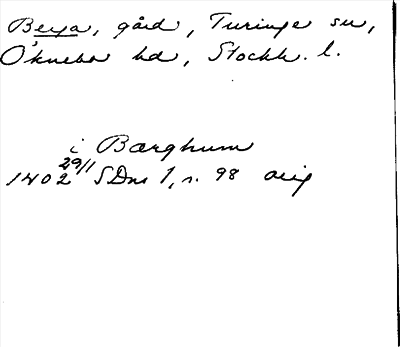 Berga, gård, Turinge sn,
Öknebo hd, Stockh. l.
i Bærghum
1402 29/1 SDns 1, n. 98 orig